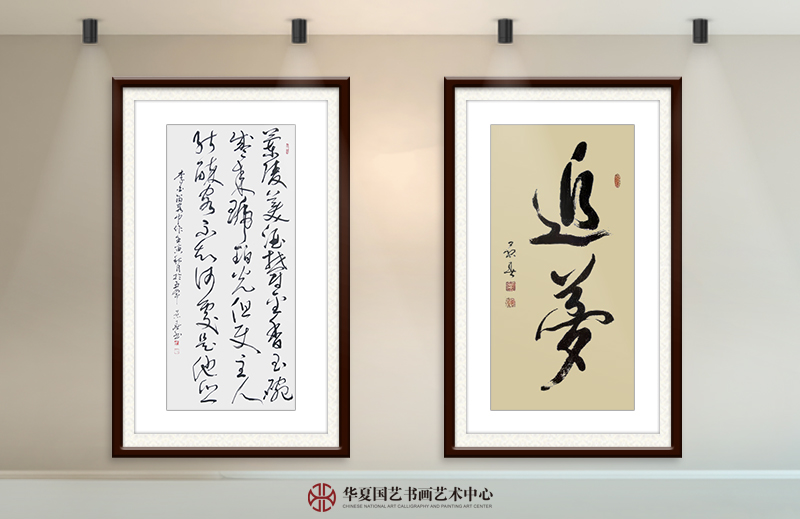 蘭陵美酒鬱金香玉碗
盛來琥珀光但使主人
能醉客不知何處是他鄉
李白客中作庚寅秋月於
追夢
华夏国艺书画艺术中心
CHINESE NATIONAL ART CALLIGRAPHY AND PAINTING ART CENTER